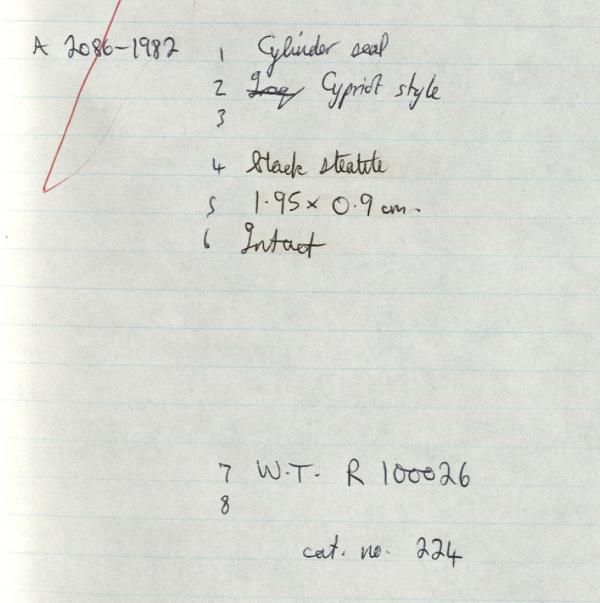 A 2086-1982 1 Cylinder seal
2 Iraq Cypriot style
3
4 Black steatite
5 1.95 x 0.9 cm.
6 Intact
7 W.T. R 100026
8
cat. no. 224